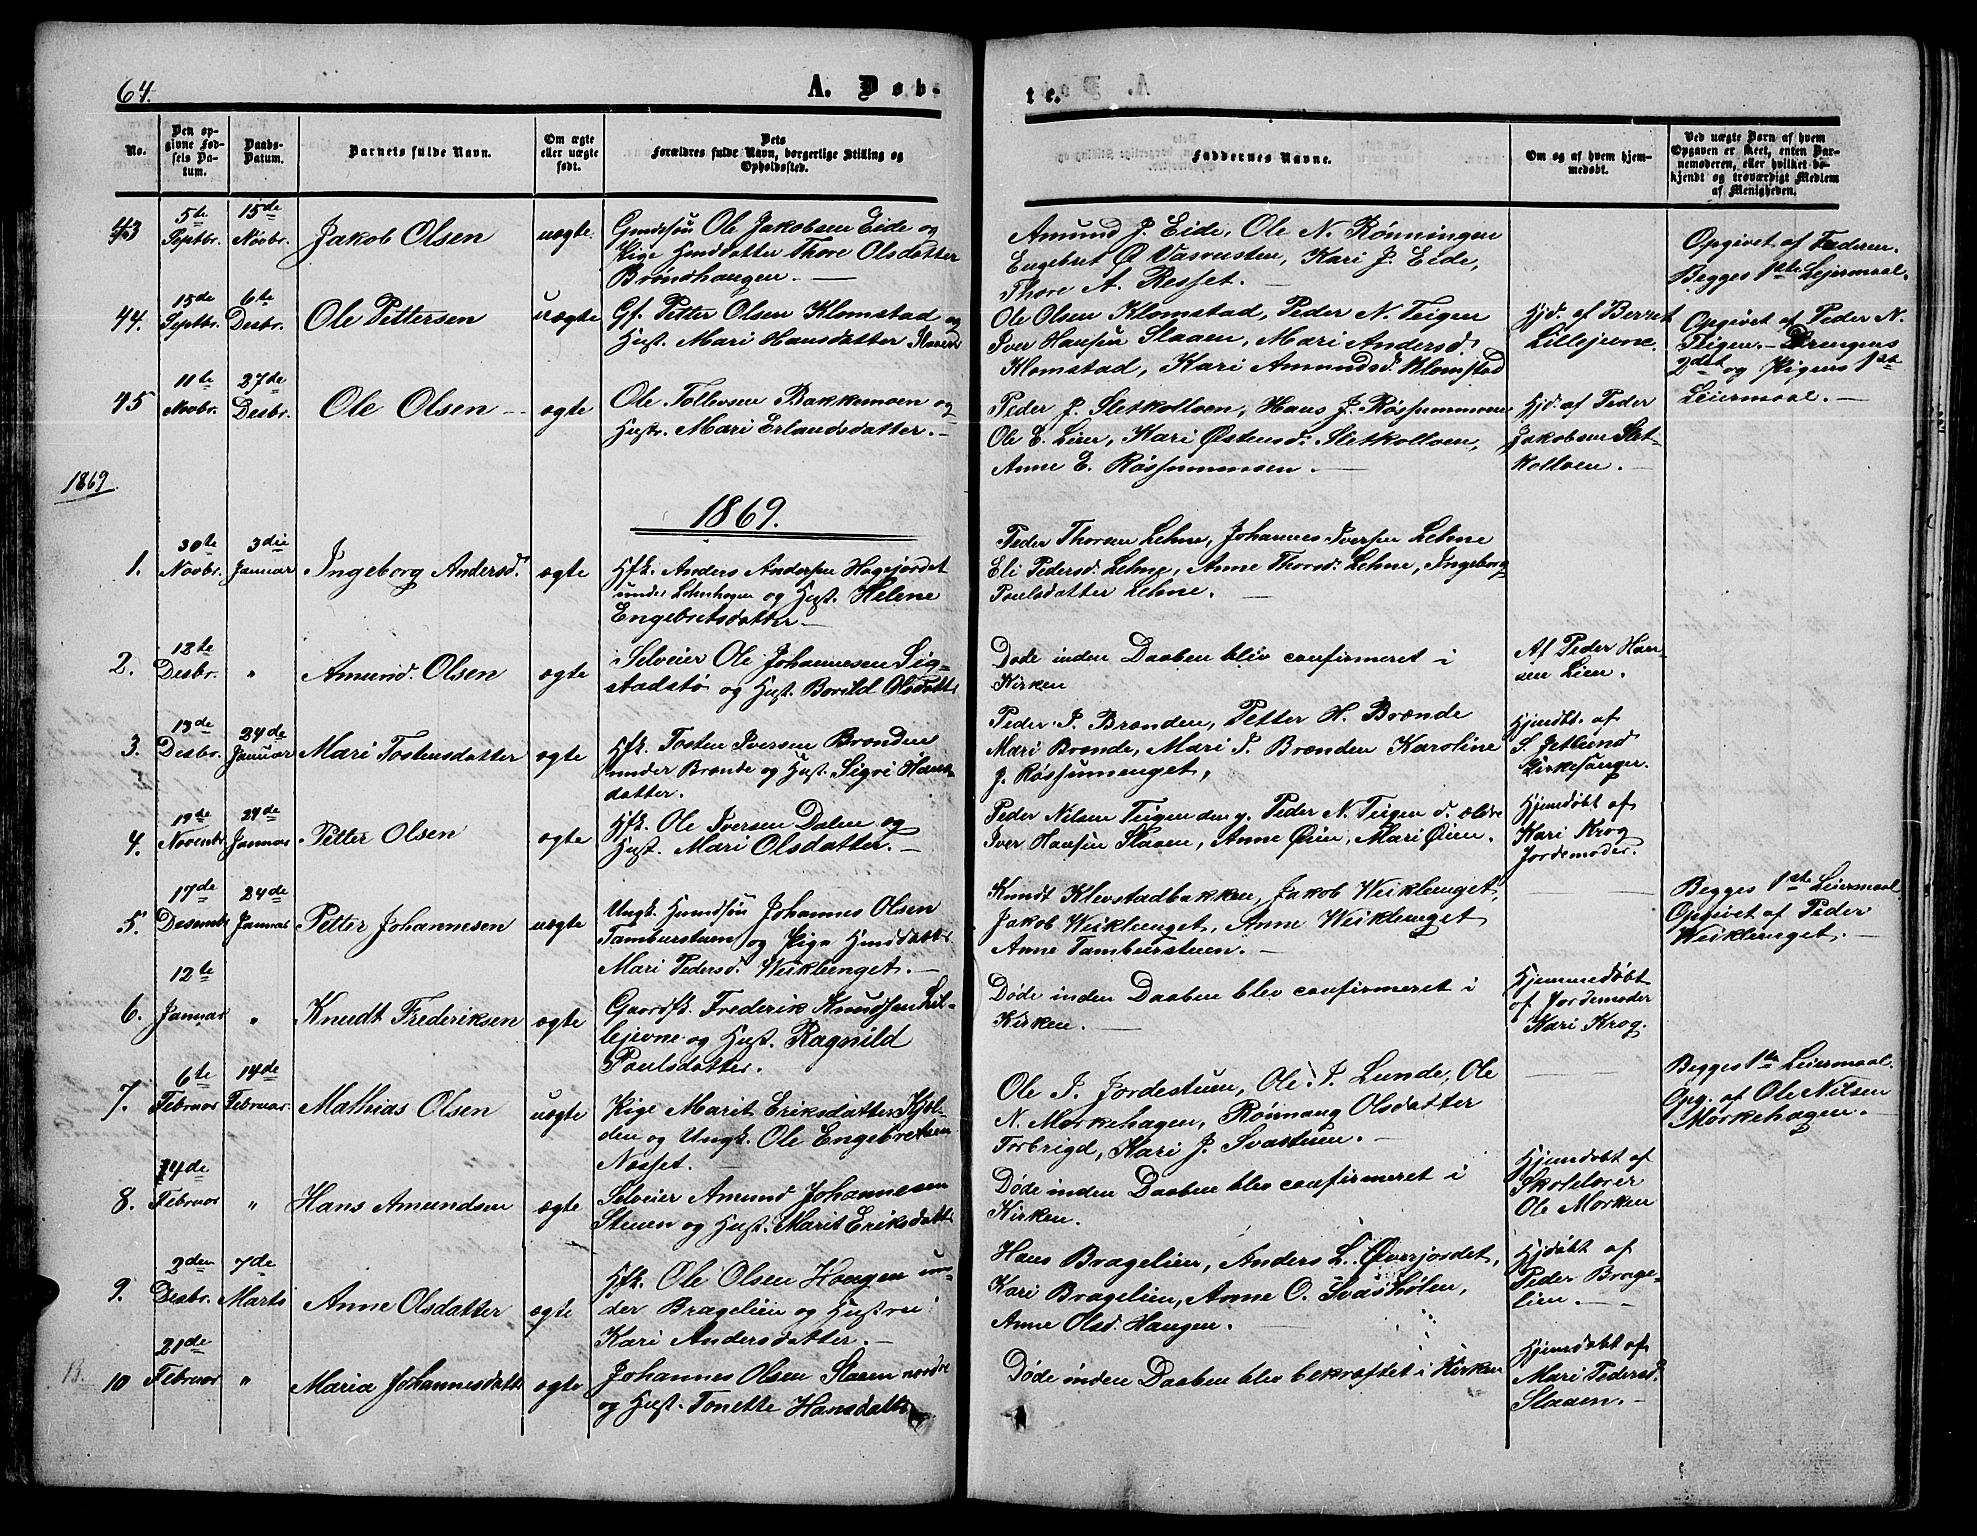 64.
A. Døb-
te.
No.
Den op-
givne Fød-
sels Da-
tum.
Daabs-
Datum.
Barnets fulde Navn.
Om ægte
eller uægte
født.
Dets
Forældres fulde Navn, borgerlige Stilling og
Opholdssted.
Faddernes Navne.
Om og af hvem hjem-
medøbt.
Ved uægte Barn af hvem
Opgaven er skeet, enten Bar-
nemoderen, eller hvilket be-
kjendt og troværdigt Medlem
af Menigheden.
43
5te
Septbr.
15de
Novbr.
Jakob Olsen
uægte.
Ole Jakobsen Eide og
Pige Thore Olsdatter
Brøndhaugen. —
Amund J. Eide, Ole N. Rønningen
Engebret Ø Kari J. Eide,
Thore A. Resset. —
Opgivet af Faderen.
Begges 1ste Leiermaal.
44.
15de
Septbr.
6te
Desbr.
Ole Pettersen
uægte
Gf. Petter Olsen Klomstad og
Hust. Mari Hansdatter
Ole Olsen Klomstad, Peder N. Teigen
Iver Hansen Slaaen, Mari Andersd.
Klomstad, Kari Amundsd. Klomstad
Hjd. af Berret
Lillejevne.
Opgivet af Peder N.
Teigen. — Drengens
2det og Pigens 1ste
Leiermaal. —
45
11te
Novbr.
27de
Desbr.
Ole Olsen
ægte
Ole Tollevsen Bakkemoen og
Hustr. Mari Erlandsdatter. —
Peder J. Sletkolloen, Hans J. Røssummoen
Ole E. Lien, Kari Østensd: Sletkolloen,
Anne E. Røssummoen. —
Hjd. af Peder
Jakobsen Slet-
kolloen. —
1869
1869.
1.
30te
Novbr.
3die
Januar
Ingeborg Andersd.
ægte
Hfk. Anders Andersen Hagejordet
under og Hust. Helene
Engebretsdatter. —
Peder Thorsen Lehne, Johannes Iversen Lehne
Eli Pedersd. Lehne, Anne Thorsd. Lehne, Ingeborg
Poulsdatter Lehne. —
2.
18te
Desbr.
"
Amund Olsen
ægte
Selveier Ole Johannesen Sig-
stadstø og Hust. Borild Olsdatt
Døde inden Daaben blev confirmeret i
Kirken
Af Peder Han-
sen Lien.
3.
13de
Desbr.
24de
Januar
Mari Tostensdatter
ægte
Hfk. Tosten Iversen Brænden
under Brænde og Hust. Sigri Hans-
datter.
Peder I. Brænden, Petter H. Brænde
Mari Brænde, Mari P. Brænden Karoline
J. Røssumenget,
Hjemdbt. af
S. Jetlund
Kirkesanger.
4.
19de
Novembr
24de
Januar
Petter Olsen
ægte
Hfk. Ole Iversen Dalen og
Hust. Mari Olsdatter. —
Peder Nilsen Teigen den y. Peder N. Teigen d. ældre
Iver Hansen Slaaen, Anne Øien, Mari Øien.
Hjemdøbt af
Kari Krog
Jordemoder.
5.
17de
Desembr
24de
Januar
Petter Johannesen
uægte
Ungk. Huusmdsøn Johannes Olsen
Tamburstuen og Pige
Mari Pedersd. Weiklenget. —
Knudt Klevstadbakken, Jakob Weiklenget,
Jakob Weiklenget, Anne Weiklenget
Anne Tamburstuen. —
Begges 1ste Leiermaal
Opgivet af Peder
Weiklenget. —
6.
12te
Januar
"
Knudt Frederiksen
ægte
Gaardsk. Frederik Knudsen Lil-
lejevne og Hust. Ragnild
Paulsdatter.
Døde inden Daaben blev confirmeret i
Kirken. —
Hjemmedøbt
af Jordemoder
Kari Krog.
7.
6te
Februar
14de
Februar
Mathias Olsen
uægte
Pige Marit Eriksdatter Kjøl-
den og Ungk. Ole Engebretsen
Nosset. —
Ole P. Jordestuen, Ole P. Lunde, Ole
N. Morkehagen, Rønnaug Olsdatter
Forbrigd, Kari J. Svastuen. —
Begges 1ste Leiermaal.
Opg. af Ole Nilsen
Morkehagen. —
8.
14de
Februar
"
Hans Amundsen
ægte
Selveier Amund Johannesen
Stuen og Hust. Marit Eriksdatt
Døde inden Daaben blev confirmeret i
Kirken.
Hjemdøbt af
Skolelærer
Ole Morken
9.
2den
Desbr.
7de
Marts
Anne Olsdatter
ægte
Hfk. Ole Olsen Haugen un-
der Bragelien og Hustru
Kari Andersdatter. —
Hans Bragelien, Anders L. Øverjordet,
Kari Bragelien, Anne O. Svashølen,
Anne Olsd. Haugen. —
Hjdøbt af
Peder Brage-
lien. —
10
21de
Februar
"
Maria Johannesdatt
ægte
Johannes Olsen Slaaen nordre
og Hust. Tonette Hansdatt
Døde inden Daaben blev bekræftet i Kirken
Hjemdøbt af
Mari Pedersd.
Slaaen. —